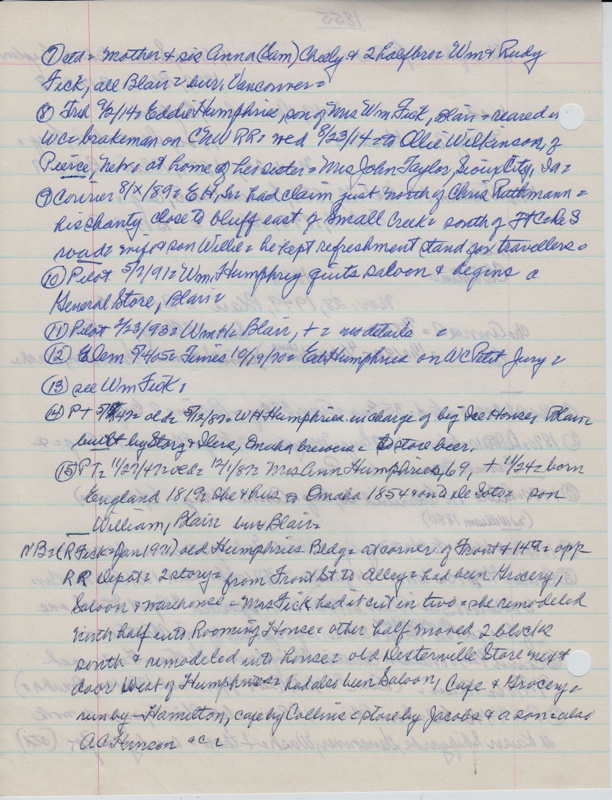 ⑦ ctd = mother & sis Anna (Sam) Chealy & 2 half bros = Wm & Rudy
Fick, all Blair = bur, Vancouver =
⑧ Trib 9/2/14 = Eddie Humphries, son of Mrs Wm Fick, Blair = reared in
WC = brakeman on CNW RR = wed 8/23/14 = to Ollie Wilkinson, of
Pierce, Nebr = at home of her sister = Mrs John Taylor, Sioux City, Ia =
⑨ Courier 8/X/89 = E H, Sr = had claim just north of Chris Rathmann =
his shanty close to bluff east of small Creek = south of Ft C & De S
road = wife & son Willie = he kept refreshment stand for travellers =
⑩ Pilot 5/7/91 = Wm Humphrey quits saloon & begins a
General Store, Blair =
⑪ Pilot 2/23/93 = Wm H = Blair, + = no details =
⑫ = Times 10/19/70 = Ed Humphries on WC Petit Jury =
⑬ see Wm Fick,
⑭ PT = 5/12/87 = W H Humphries in charge of big Ice House, Blair =
built by Storz & Iler, Omaha brewers = to store beer.
⑮ PT = 11/27/47 = old = 12/1/87 = Mrs Ann Humphries, 69, + 11/24 = born
England 1819 = she & hus to Omaha 1854 = on to De Soto = son
William, Blair bur Blair =
NB = (R Fick = Jan 1971) old Humphries Bldg = at corner of Front & 14th = opp
RR Depot = 2 story = from Front St to Alley = had been Grocery,
Saloon & warehouse = Mrs Fick had it cut in two = she remodeled
north half into Rooming House = other half moved 2 blocks
south & remodeled into house = old Dexterville Store next
door West of Humphries = had also been Saloon, Cafe & Grocery =
run by - Hamilton, cafe by Collins = store by Jacobs & a son = also
A C Hinson =